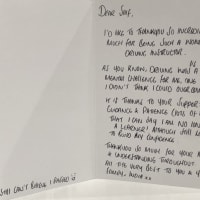 Dear Saf,
I'd like to thankyou so incredibly
much for being such a won
driving instructor.
As you know, driving was a
mental challenge for me, one
I didn't think I could overcom
It is thanks to your support
guidance & patience (lots of
that I can say I am no
a learner! Although still
to find my confidence
Thankyou so much for your
& understanding throughout
All the very best to you & y
family,
Still can't believe I passed